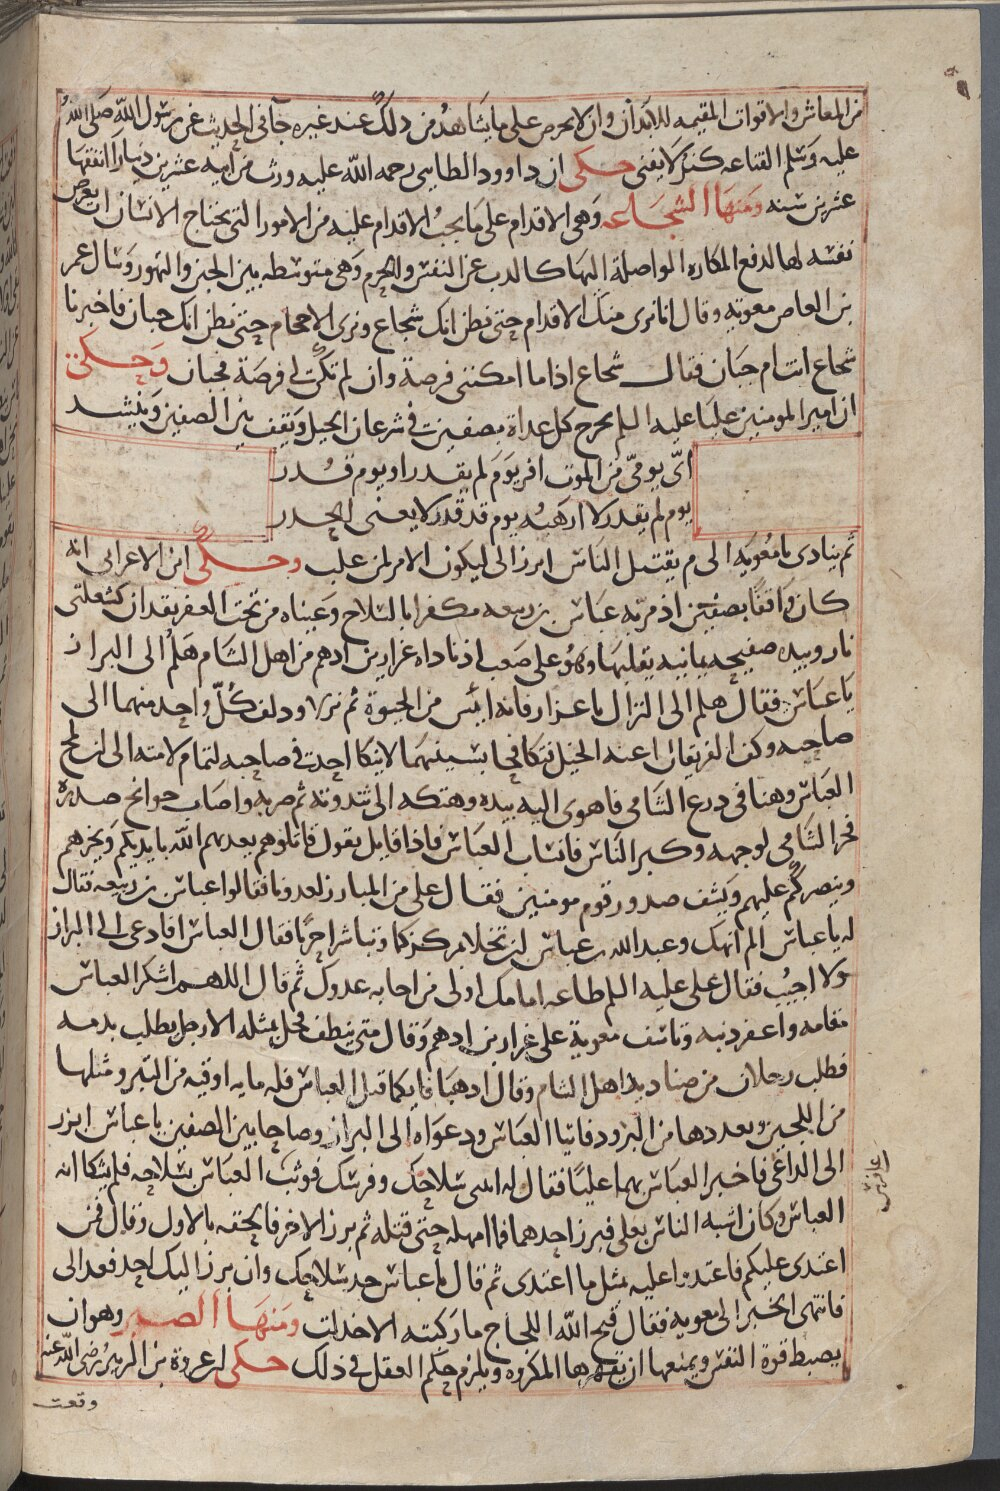 من المعاش والاقوات المقيمه للابدان وان لا يحرص على ما يشاهد من ذلك عند غيره جآ في الحديث عن رسول الله صلى الله
عليه وسلم القناعه كنز لا يفنى حكى ان داوود الطايى رحمه الله عليه ورث من ابيه عشرين دينارا انفقها
عشرين سنه ومنها الشجاعه وهى الاقدام على ما يجب الاقدام عليه من الامور التى يحتاج الانسان ان يعرض
نفسه لها لدفع المكاره الواصلة اليها كالذب عن النفس والحرم وهى متوسطه بين الجبن والتهور وسال عمر
بن العاص معويه وقال انا نرى منك الاقدام حتى نظن انك شجاع ونرى الاحجام حتى نظن انك جبان فاخبرنا
شجاع انت ام جبان فقال شجاع اذا ما امكنتنى فرصة وان لم تكن لى فرصة فجبان وحكى
ان امير المومنين عليا عليه السلم يخرج كل غداة بصفين في سرعان الخيل ويقف بين الصفين وينشد
اى يومى من الموت افر يوم لم يقدر او يوم قدر
يوم لم يقدر لا ارهبه يوم قد قدر لا يغنى الحذر
ثم ينادى يا معويه الى م يقتتل الناس ابرز الى ليكون الامر لمن غلب وحكى ابن الاعرابى انه
كان واقفا بصفين اذ مر به عباس بن ربيعه مكفرا بالسلاح وعيناه من تحت المغفر يقدان كشعلتى
نار وبيده صفيحه يمانيه يقلبها وهو على صعب اذ ناداه غرار بن ادهم من اهل الشام هلم الى البراز
يا عباس فقال هلم الى النزال يا عزار فانه ايئس من الحيوة ثم نزلا ودلف كل واحد منهما الى
صاحبه وكف الفريقان اعنه الخيل فتكافحا بسيفيهما لا ينكا احد في صاحبه لتمام لامته الى ان لمح
العباس وهنا فى درع الشامى فاهوى اليه بيده وهتكه الى ثندوته ثم ضربه واصاب جوانح صدره
فخر الشامى لوجهه وكبر الناس فانساب العباس فاذا قايل يقول قاتلوهم يعذبهم الله بايديكم ويخزهم
وينصركم عليهم ويشف صدور قوم مومنين فقال على من المبارز لعدونا فقالوا عباس بن ربيعه فقال
له يا عباس الم انهك وعبد الله بن عباس ان تخلا مركزكما وتباشرا حربا فقال العباس افادعى الى البراز
ولا اجيب فقال على عليه السلم طاعه امامك اولى من اجابه عدوك ثم قال اللهم اشكر العباس
مقامه واغفر ذنبه وتاسف معوية على غرار بن ادهم وقال متى ينطف فحل بمثله الا رجل يطلب بدمه
فطلب رجلان من صناديد اهل الشام وقال اذهبا فايكما قتل العباس فله مايه اوقيه من التبر ومثلها
من اللجين وبعددهما من البرود فاتيا العباس ودعواه الى البراز وصاحا بين الصفين يا عباس ابرز
الى الداعى فاخبر العباس بهما عليا فقال له اعطنى سلاحك وفرسك فوثب العباس بسلاحه فلم يشكا انه
اعلى فرس
العباس وكان اشبه الناس بعلى فبرز احدهما فما امهله حتى قتله ثم برز الاخر فالحقه بالاول وقال فمن
اعتدى عليكم فاعتدوا عليه بمثل ما اعتدى ثم قال يا عباس خذ سلاحك وان برز اليك احد فعد الى
فانتهى الخبر الى معويه فقال قبح الله اللجاج ما ركبته الا خذلت ومنها الصبر وهو ان
يضبط قوة النفس ويمنعها ان يقهرها المكروه ويلزم حكم العقل في ذلك حكى ان عروة بن الزبير رضى الله عنه
وقعت